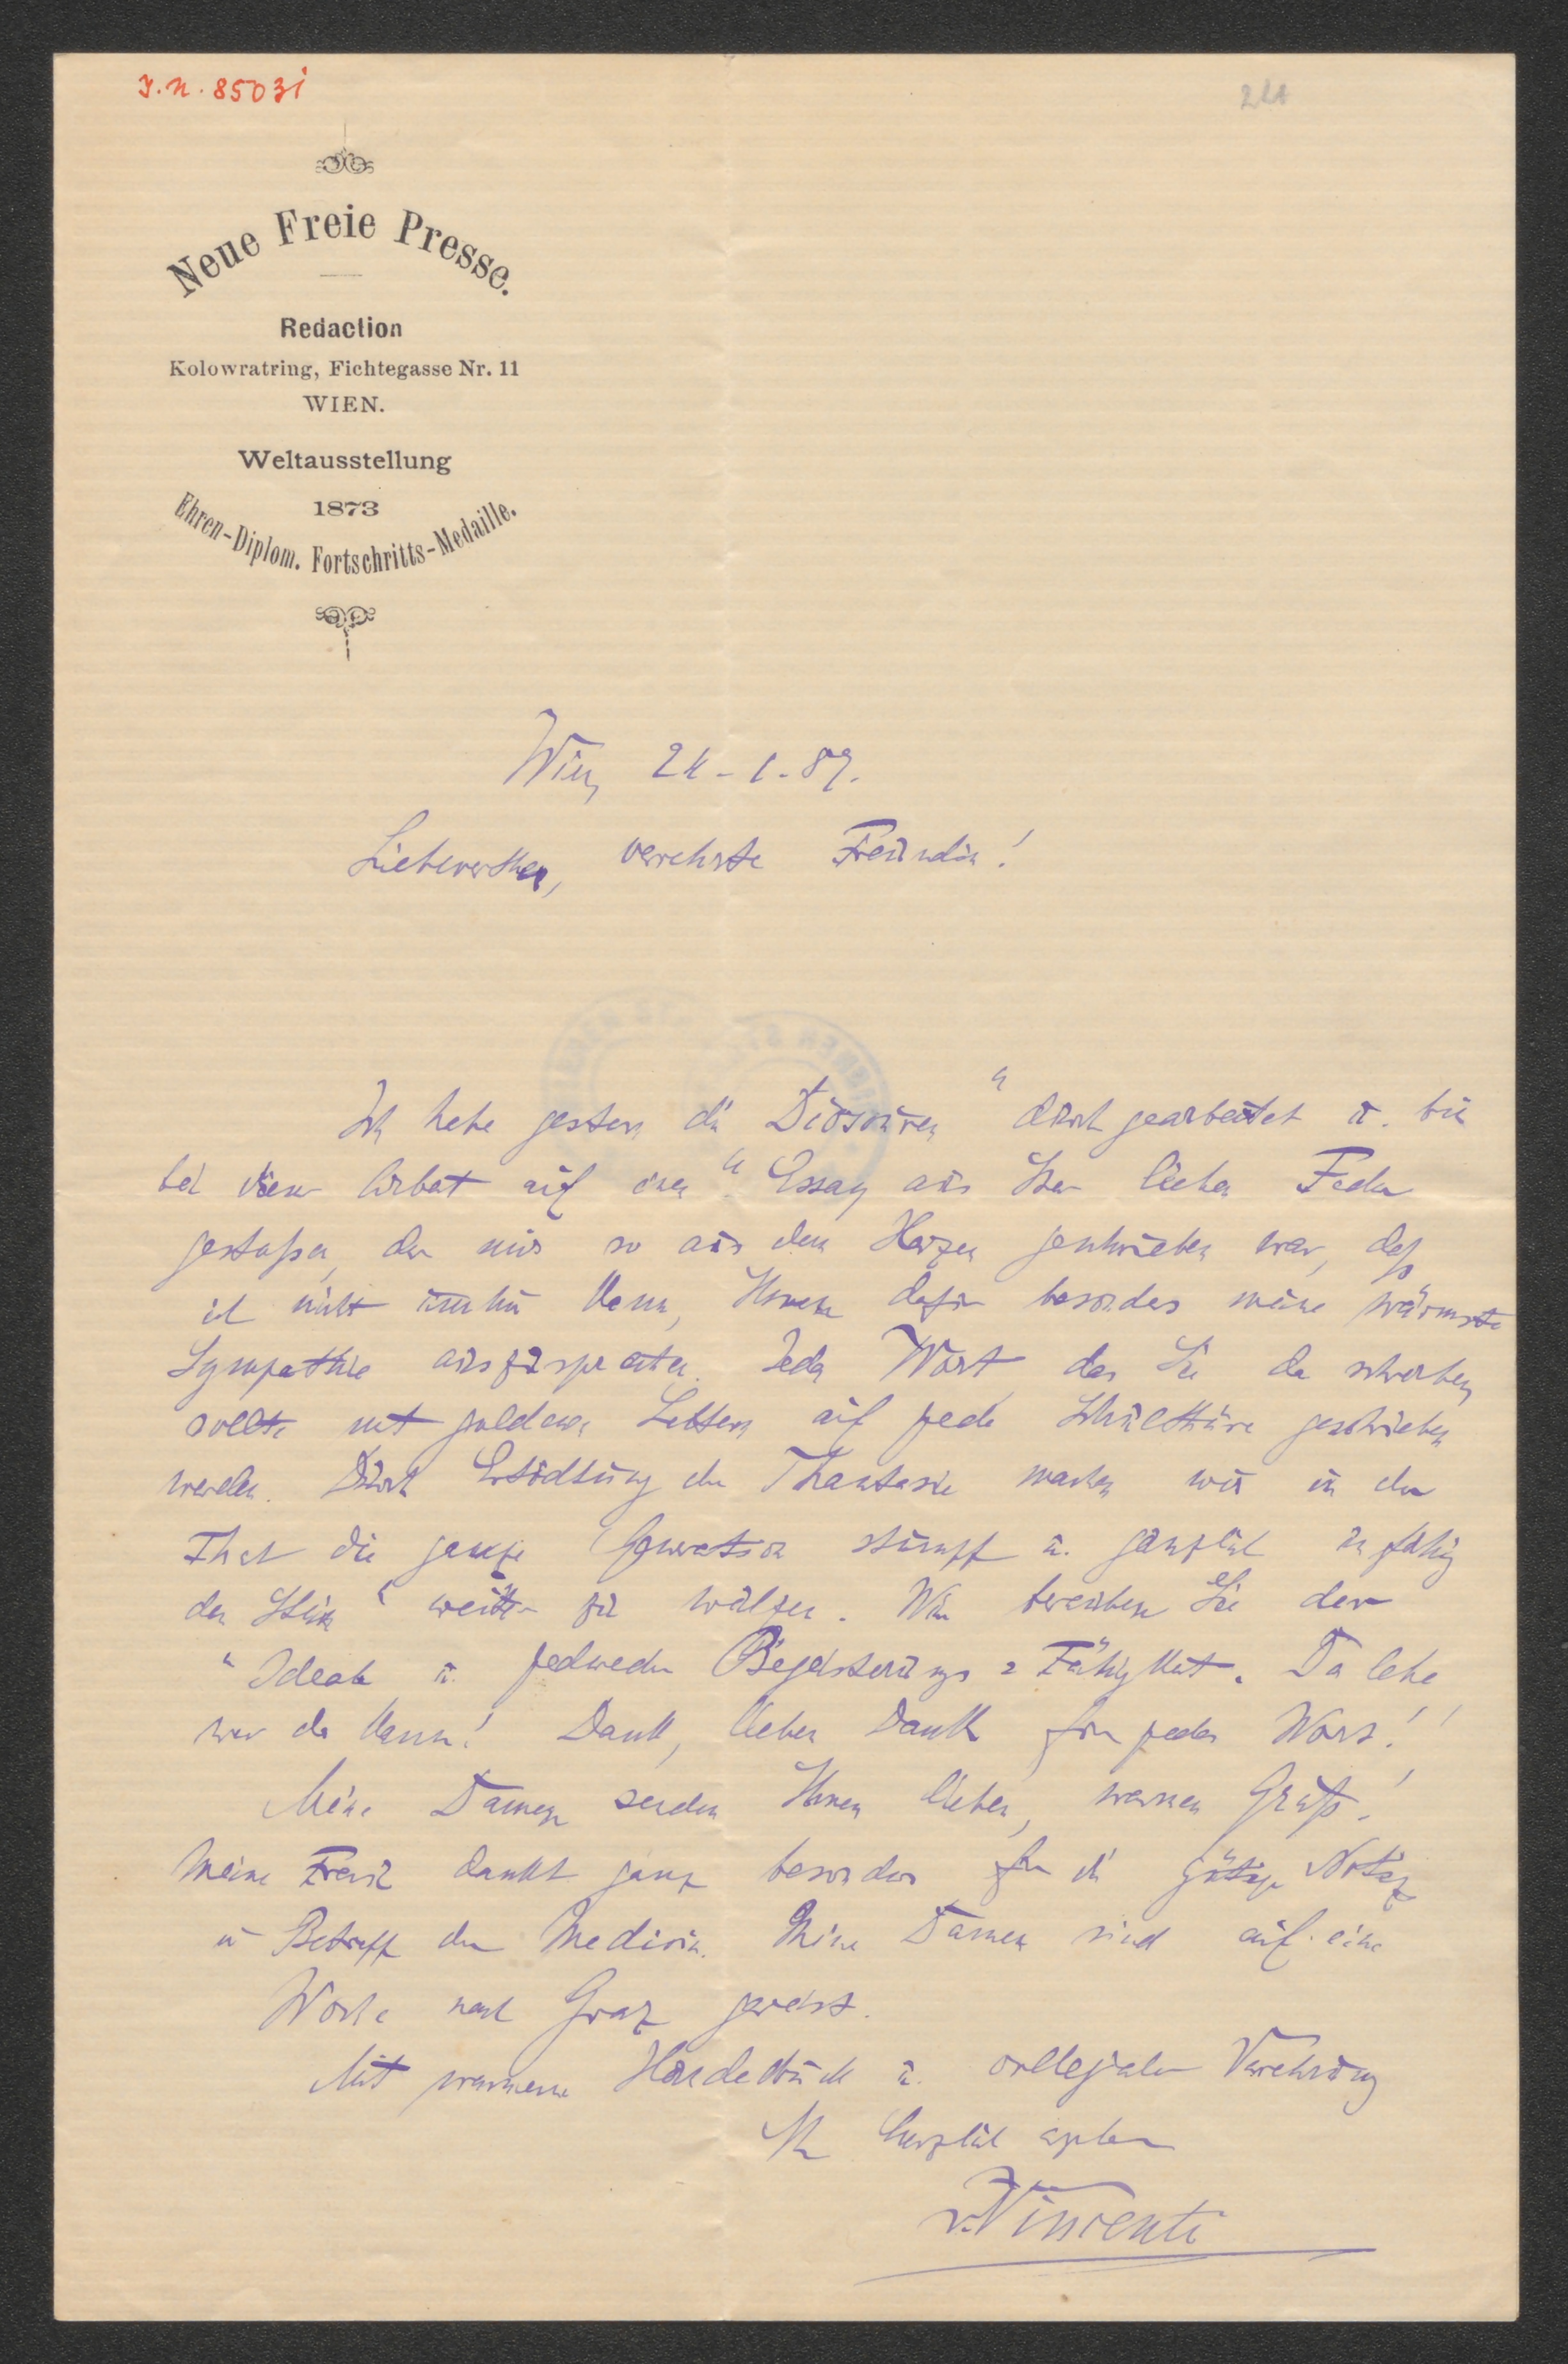 I.N. 85031
Neue Freie Presse.
Redaction
Kolowratring, Fichtegasse Nr. 11
WIEN.
Weltausstellung
1873
Ehren-Diplom. Fortschritts-Medaille.
Wien, 24-1-89.
Liebwerthe, verehrte Freundin!
Ich habe gestern die „Dioskuren“ durchgearbeitet u. bin
bei dieser Arbeit auf einen Essay aus Ihrer lieben Feder
gestoßen, der mir so aus dem Herzen geschrieben war, daß
ich nicht umhin kann, Ihnen dafür besonders meine wärmste
Sympathie auszusprechen. Jedes Wort, das Sie da schreiben,
sollte mit goldenen Lettern auf jede Schulthüre geschrieben
werden. Durch Ertödtung der Phantasie machen wir in der
That die ganze Generation stumpf u. gänzlich unfähig
den weiter zu wälzen. Wir berauben sie der
Ideale u. jedweder Begeisterungs-Fähigkeit. Da lebe
wer da kann! Dank, lieben Dank für jedes Wort!!
Meine Damen senden Ihnen lieben, warmen Gruß!
Meine Frau dankt ganz besonders für die gütige Notiz
in Betreff der Medicin. Meine Damen sind auf eine
Woche nach Graz gereist.
Mit warmem Händedruck u. collegialer Verehrung
Ihr herzlich ergebener
v. Vincenti